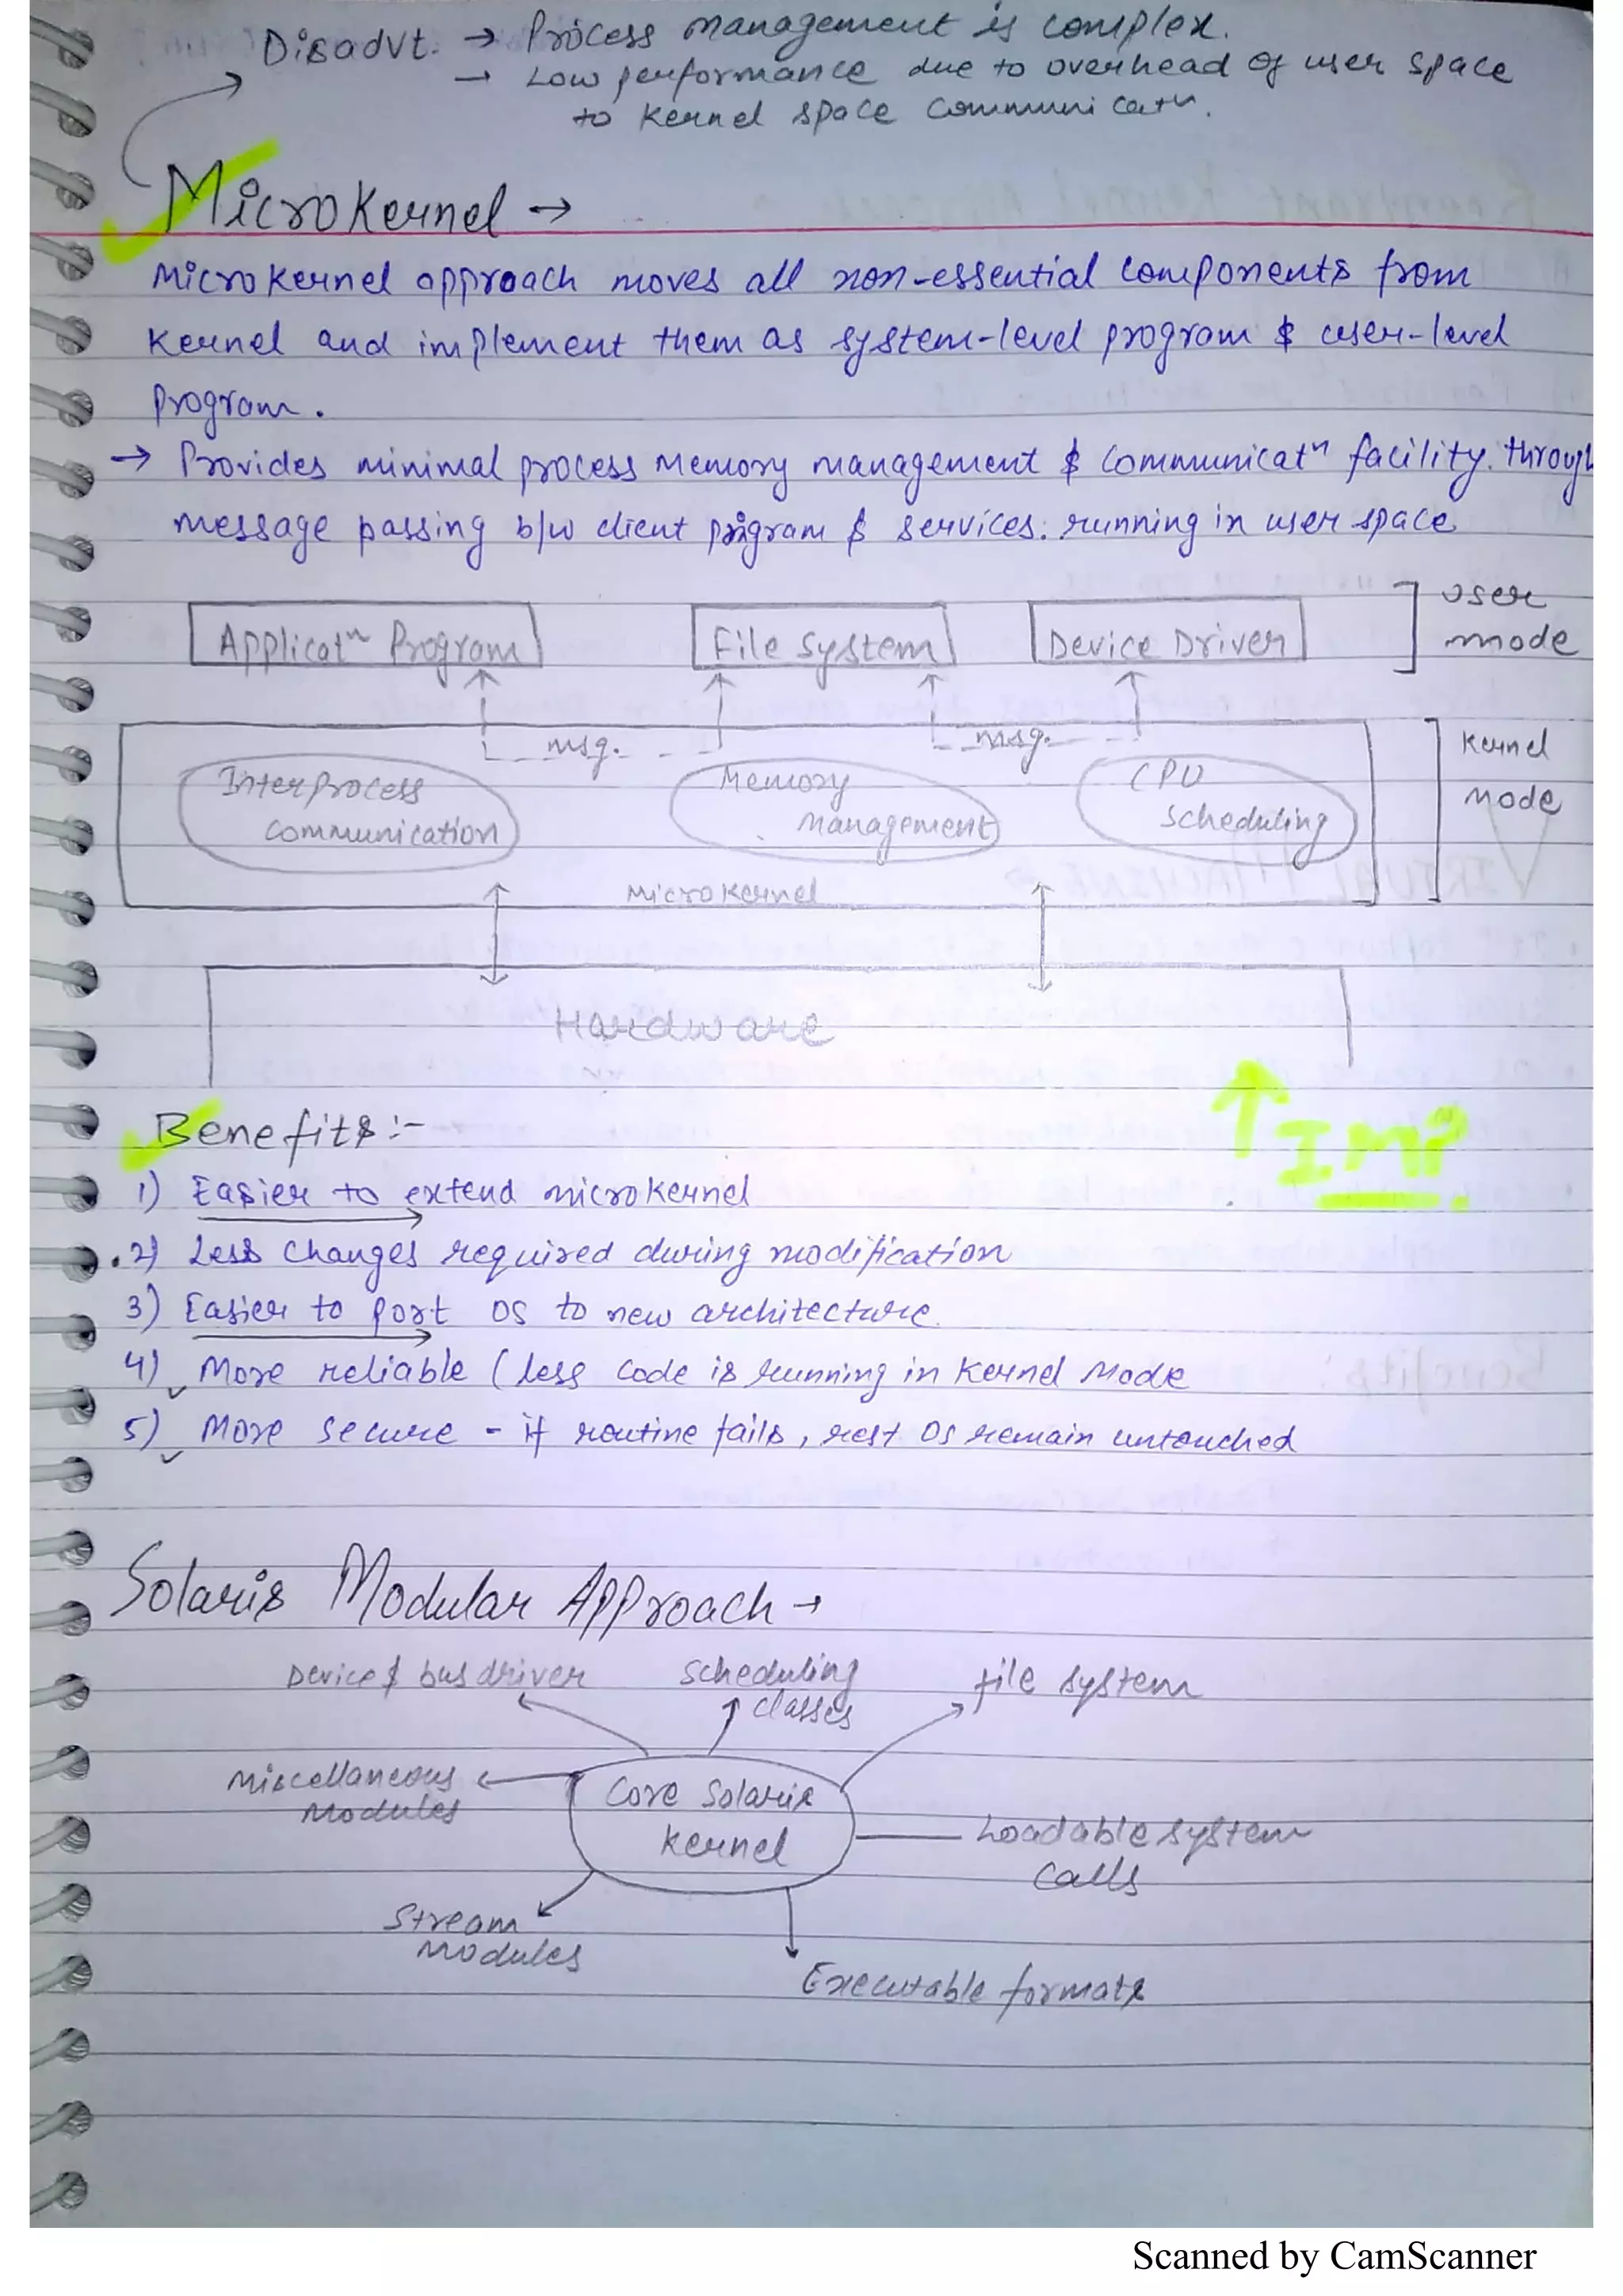 Disadvt. → Process management is complex.
→ Low performance due to overhead of user space
to Kernel space communicatn.
MicroKernel →
MicroKernel approach moves all non-essential components from
Kernel and implement them as system-level program & user-level
program.
→ Provides minimal process memory management & communicatn facility. through
message passing b/w client program & services. running in user space
Applicatn Program
File System
Device Driver
User
mode
msg.
msg.
Kernel
Mode
Interprocess
Communication
Memory
Management
CPU
Scheduling
MicroKernel
Hardware
Benefits :-
↑ Imp.
1) Easier to extend microKernel
2) Less changes required during modification
3) Easier to port OS to new architecture.
4) More reliable (less code is running in Kernel Mode
5) More secure - if routine fails, rest OS remain untouched
Solaris Modular Approach →
Device & bus driver
Scheduling
classes
file system
Miscellaneous
Modules
Core Solaris
Kernel
Loadable system
calls
Stream
Modules
Executable formats
Scanned by CamScanner